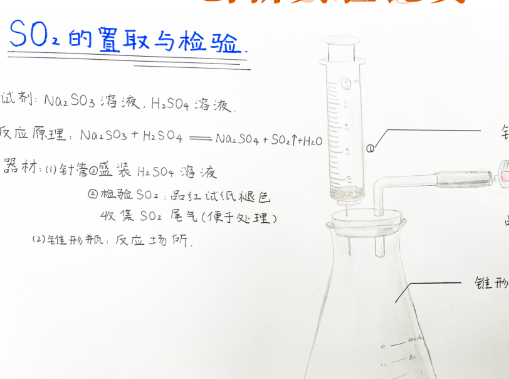 SO₂的置取与检验.
试剂: Na₂SO₃溶液, H₂SO₄溶液.
反应原理: Na₂SO₃ + H₂SO₄ == Na₂SO₄ + SO₂↑ + H₂O
器材: (1) 针管①盛装 H₂SO₄ 溶液
②检验SO₂. 品红试纸褪色
收集 SO₂ 尾气(便于处理)
(2) 锥形瓶: 反应场所.
①
锥形